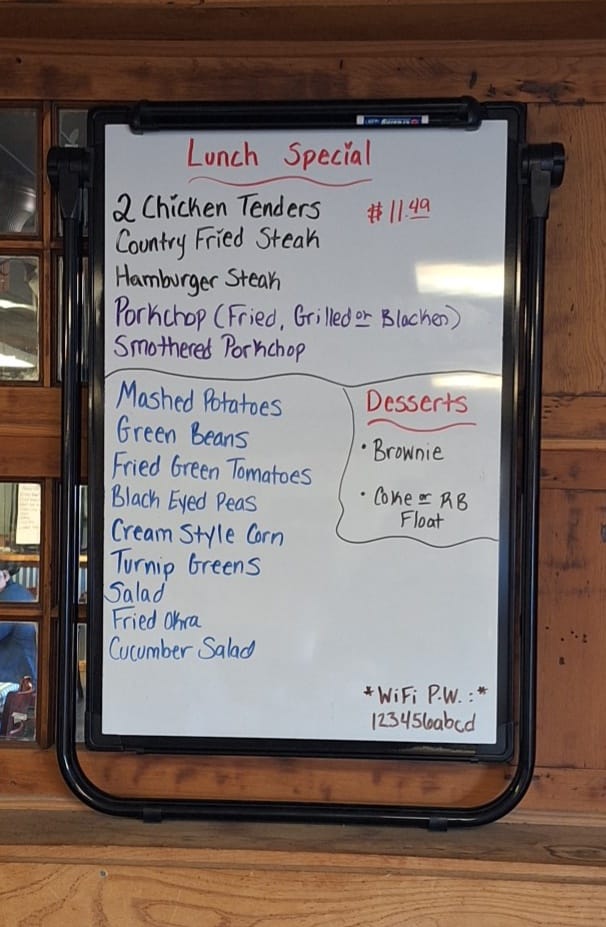 Lunch Special
2 Chicken Tenders $11.49
Country Fried Steak
Hamburger Steak
Porkchop (Fried, Grilled or Blacken)
Smothered Porkchop
Mashed Potatoes
Green Beans
Fried Green Tomatoes
Black Eyed Peas
Cream Style Corn
Turnip Greens
Salad
Fried Okra
Cucumber Salad
Desserts
• Brownie
• Coke or RB
Float
*WiFi P.W.:*
123456abcd